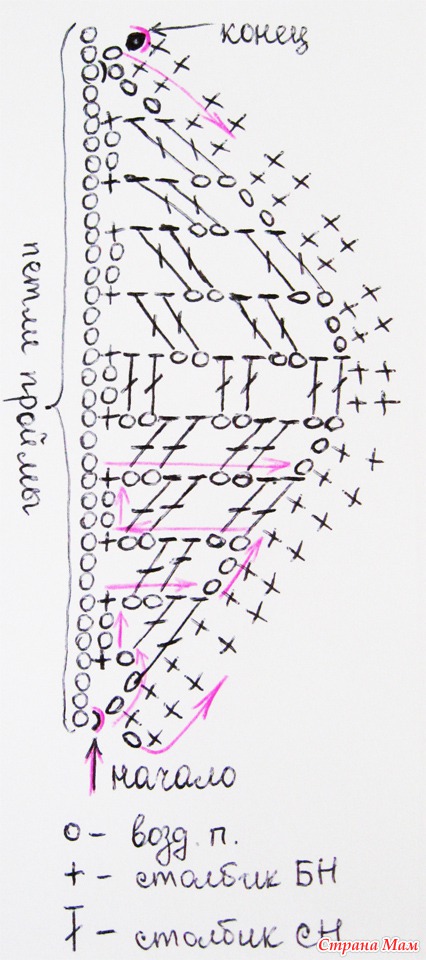 конец
петли проймы
начало
o – возд. п.
+ – столбик БН
† – столбик СН
Страна Мам